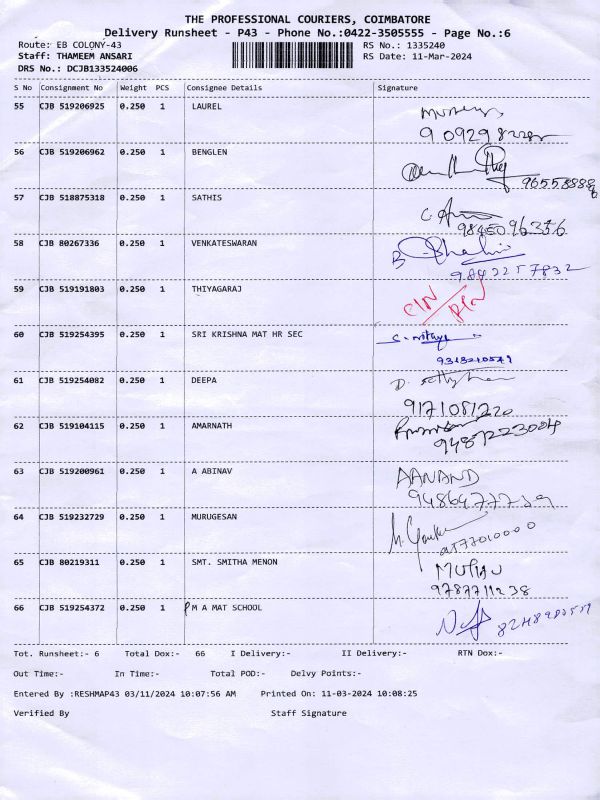 THE PROFESSIONAL COURIERS, COIMBATORE
Delivery Runsheet - P43 - Phone No.:0422-3505555 - Page No.:6
Route: EB COLONY-43 RS No.: 1335240
Staff: THAMEEM ANSARI RS Date: 11-Mar-2024
DRS No.: DCJB133524006
S No Consignment No Weight PCS Consignee Details Signature
55 CJB 519206925 0.250 1 LAUREL
56 CJB 519206962 0.250 1 BENGLEN
57 CJB 518875318 0.250 1 SATHIS
98450 96356
58 CJB 80267336 0.250 1 VENKATESWARAN
9842257832
59 CJB 519191803 0.250 1 THIYAGARAJ
60 CJB 519254395 0.250 1 SRI KRISHNA MAT HR SEC
61 CJB 519254082 0.250 1 DEEPA
9171081220
62 CJB 519104115 0.250 1 AMARNATH
63 CJB 519200961 0.250 1 A ABINAV AANAND
64 CJB 519232729 0.250 1 MURUGESAN
65 CJB 80219311 0.250 1 SMT. SMITHA MENON
9787711238
66 CJB 519254372 0.250 1 M A MAT SCHOOL
Tot. Runsheet:- 6 Total Dox:- 66 I Delivery:- II Delivery:- RTN Dox:-
Out Time:- In Time:- Total POD:- Delvy Points:-
Entered By :RESHMAP43 03/11/2024 10:07:56 AM Printed On: 11-03-2024 10:08:25
Verified By Staff Signature